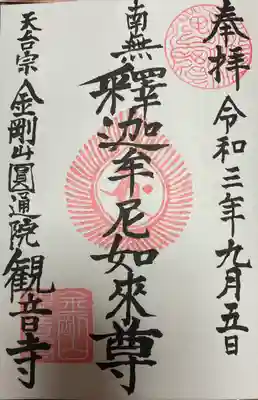 奉拝
令和三年九月五日
南無釋迦牟尼如來尊
天台宗金剛山圓通院観音寺